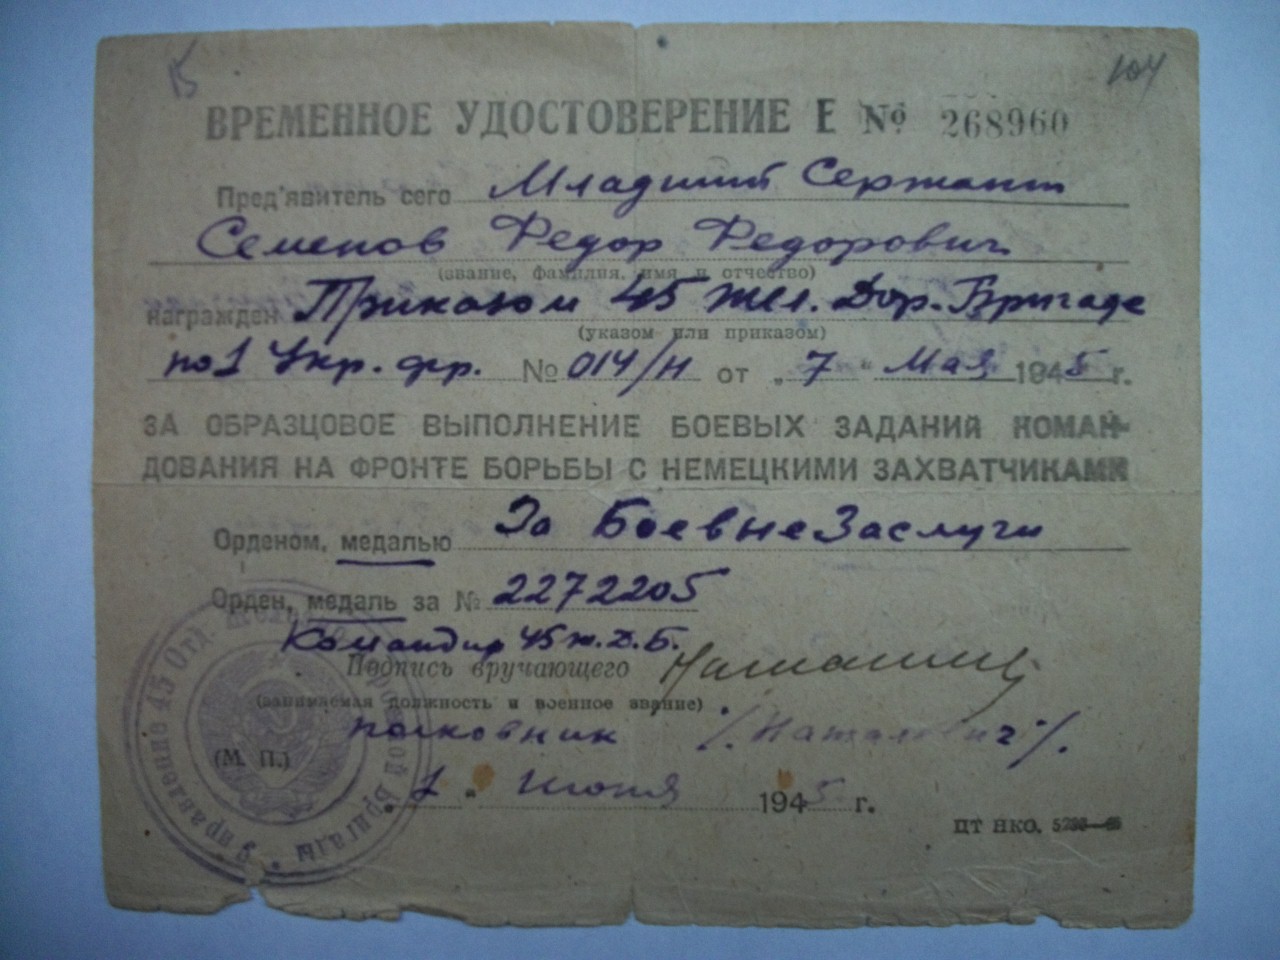 104
ВРЕМЕННОЕ УДОСТОВЕРЕНИЕ Е № 268960
Пред'явитель сего Младший Сержант
Семенов Федор Федорович
(звание, фамилия, имя и отчество)
награжден Приказом 45 Жел. Дор. Бригаде
(указом или приказом)
по 1 Укр. фр. № 014/н от „7“ Мая 1945 г.
ЗА ОБРАЗЦОВОЕ ВЫПОЛНЕНИЕ БОЕВЫХ ЗАДАНИЙ КОМАН-
ДОВАНИЯ НА ФРОНТЕ БОРЬБЫ С НЕМЕЦКИМИ ЗАХВАТЧИКАМИ
Орденом, медалью За Боевые Заслуги
Орден, медаль за № 2272205
Командир 45 ж.Д.Б.
Подпись вручающего
(занимаемая должность и военное звание)
полковник
(М. П.)
Управление 45 Отд. Железнодорожной Бригады
Июня 1945 г.
ЦТ НКО.